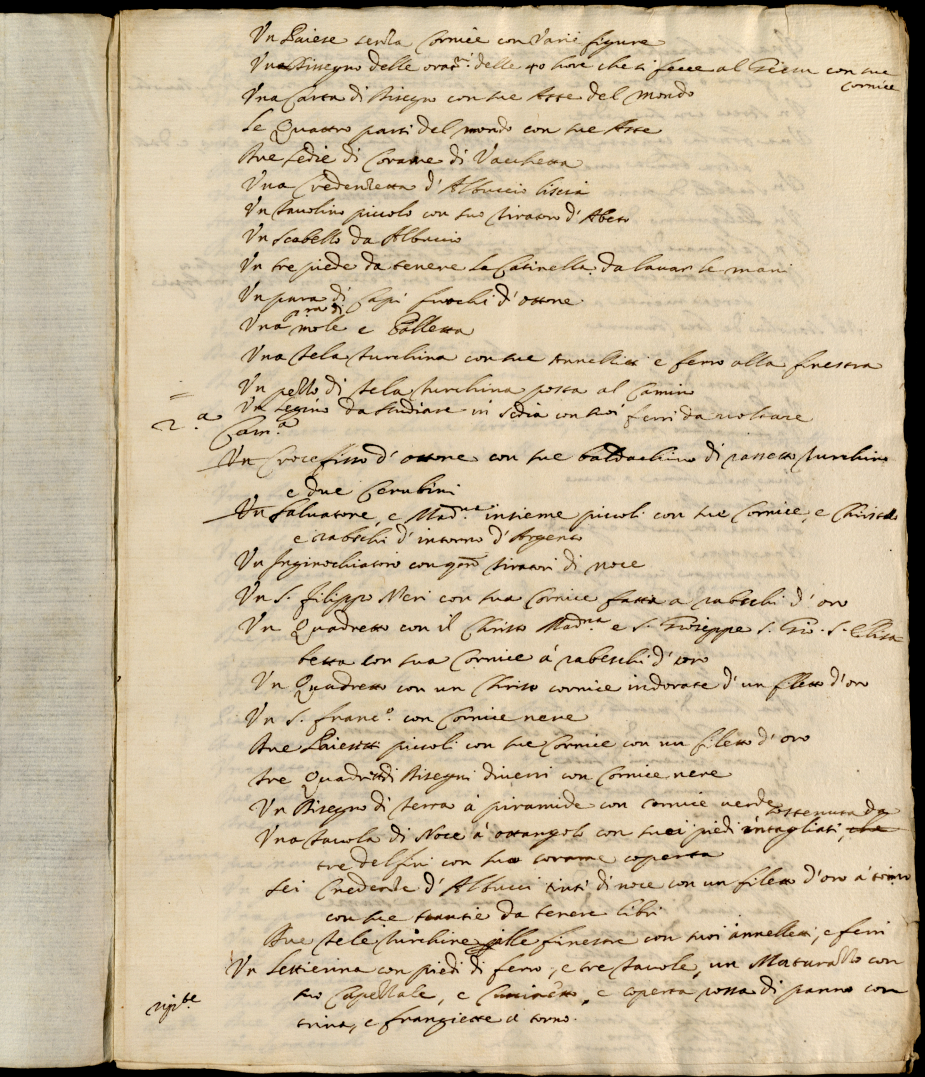 Vn Paiese senza Cornice con Varie figure
Vn Dissegno delle oraz.ni delle 40 hore che si fece al Giesu con sue
cornice
Vna Carta di Disegno con sue Aste del mondo
Le Quattro parti del mondo con sue Aste
Due sedie di Corame di Vacchetta
Vna Credenzetta d'Albuccio liscia
Vn tauolino piccolo con suo tiratore d'Abeto
Vn scabello da Albuccio
Vn tre piede da tenere la Catinella da lauar le mani
Vn para di Capi fuochi d'ottone.
Vna mole e Palletta
Vna tela turchina con sue annelletti e ferro alla finestra
Vn pezzo di tela turchina posta al Camino
Vn legino da studiare in sedia con suoi ferri da uoltare
2.a
Cam.a
Vn Crocefisso d'ottone con sue baldachino di rasetto turchino
e due Cerubini
Vn Saluatore, e Mad.na insieme piccoli con sue Cornice, e Christallo
e rabeschi d'intorno d'Argento
Vn Inginochiatoro con tiratori di noce
Vn S. Filippo Neri con sua Cornice fatta a rabeschi d'oro
Vn Quadretto con il Christo Mad.na e S. Gioseppe S. Gio. S. Elisa
betta con sua Cornice á rabeschi d'oro
Vn Quadretto con un Christo cornice indorate d'un filetto d'oro
Vn S. Franc.o con Cornice nere
Due Paiesetti piccoli con sue Cornice con un filetto d'oro
tre Quadretti di Disegni diuersi con Cornice nere
Vn Disegno di terra á piramide con cornice uerde
Vna tauola di Noce á ottangoli con suoi piedi intagliati, sostenuta da
tre delfini con suo corame coperta
Sei Credenze d'Albucci tinti di noce con un filetto d'oro á torno
con sue da tenere libri
Due tele turchine alle finestre con suoi annelletti, e ferri
Vn Lettierina con piedi di ferro, e tre tauole, un Maturazzo con
suo Capezzale, e Cuscinetto, e coperta rossa di panno con
trina, e frangiette a torno.